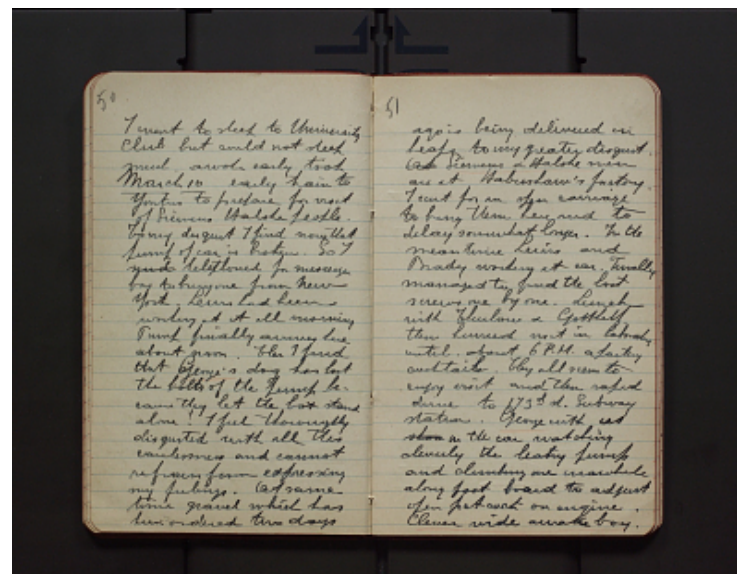 50
I went to sleep to University
Club but could not sleep
much, awoke early took
March 10 early train to
Yonkers to prepare for visit
of Siemens Halske people.
To my disgust I find now that
pump of car is broken. So I
telephoned for messenger
boy to bring one from New
York. Lewis had been
working at it all morning
Pump finally arrives here
about noon. Then I find
that George's dog has lost
the bolts of the pump be-
cause they let the box stand
alone! I feel thoroughly
disgusted with all this
carelessness and cannot
refrain from expressing
my feelings. At same
time gravel which has
been ordered two days
51
ago is being delivered in
heaps to my greater disgust.
Siemens & Halske men
are at Habershaw's factory.
I sent for an open carriage
to bring them here and to
delay somewhat longer. In the
meantime Lewis and
Brady working at car. Finally
managed to find the lost
screws one by one. Lunch
with Thurlow & Gotthelf
then hurried visit in laboratory
until about 6 P.M. a facity
cocktails. They all seem to
enjoy visit and then rapid
drive to 173d st. Subway
station. George with
in the car watching
cleverly the leaky pump
and climbing once in a while
along foot board to adjust
open pet cock on engine.
Clever wide awake boy.